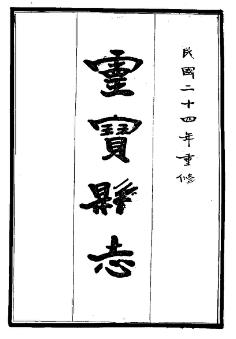 民國二十四年重修
靈寶縣志